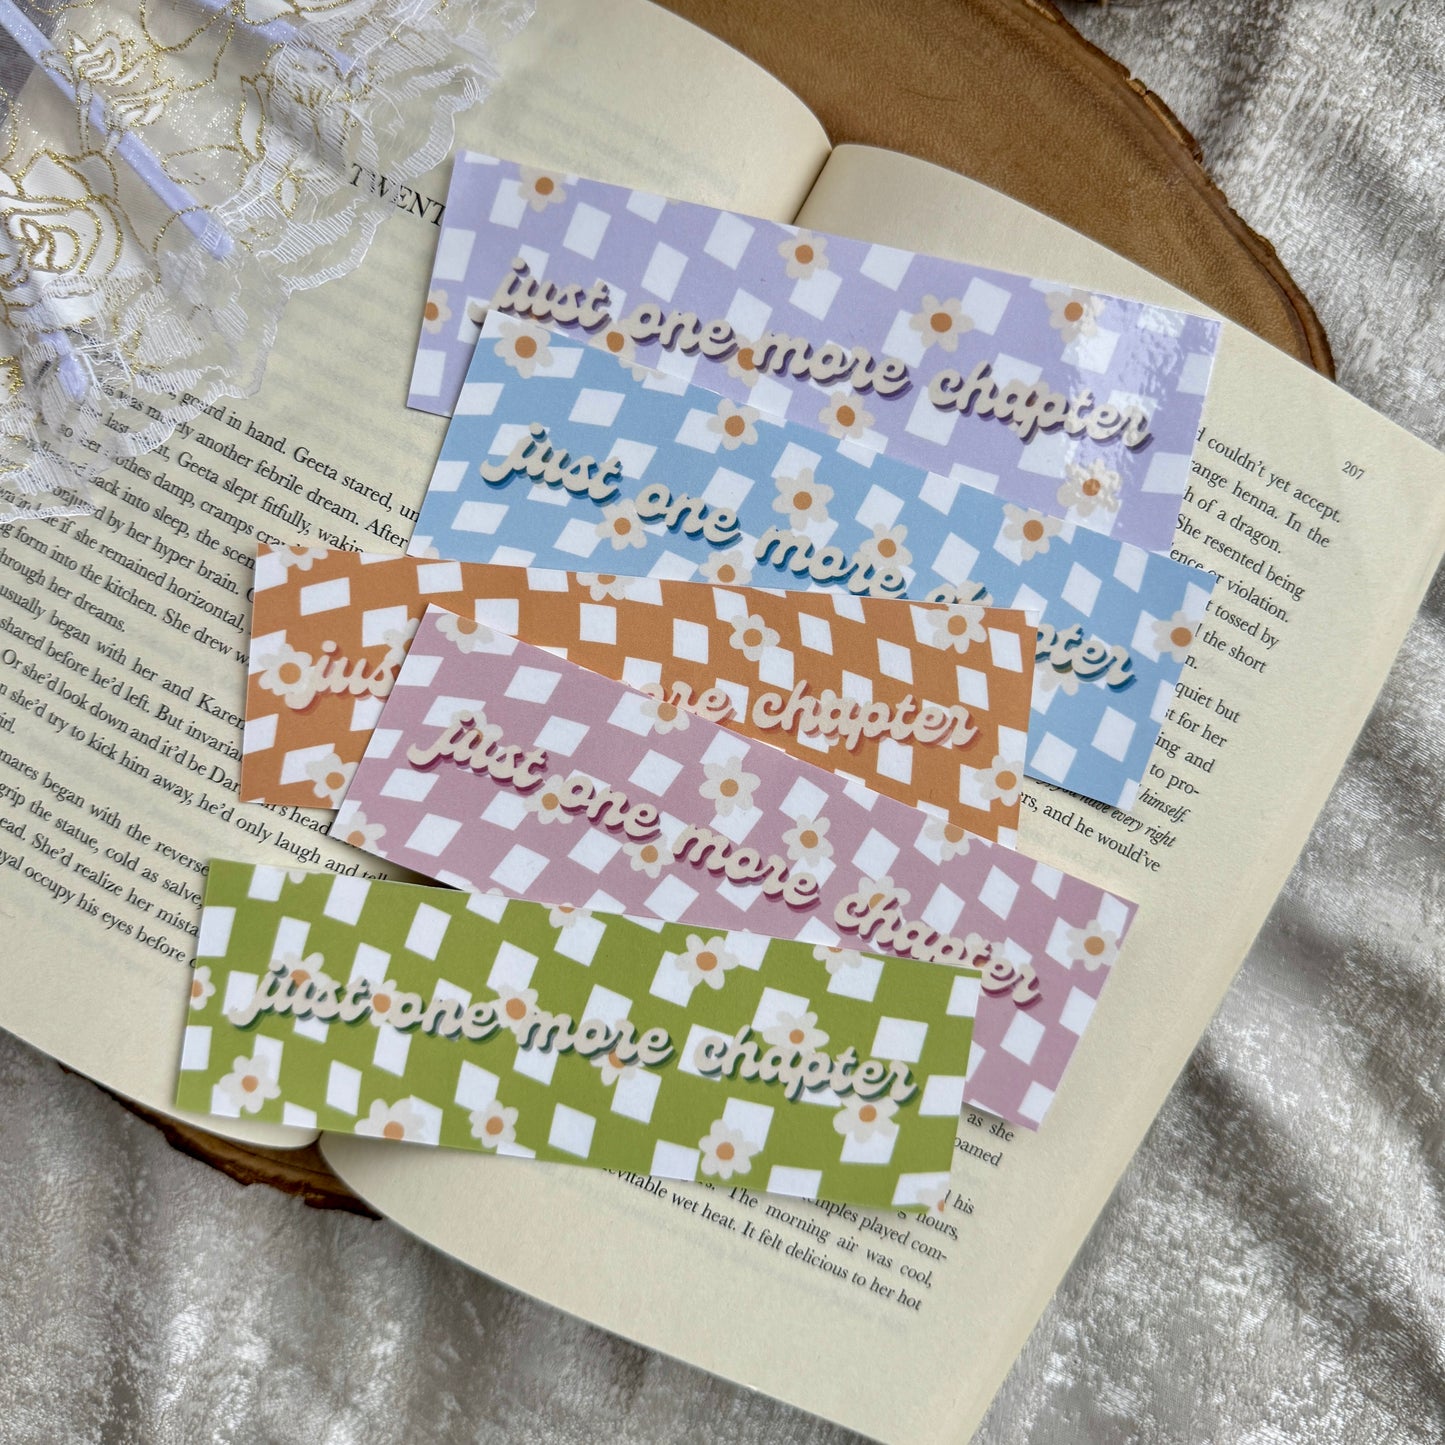 TWENT
just one more chapter
just one more chapter
jus more chapter
just one more chapter
just one more chapter
gourd in hand. Geeta stared, un
was merely another febrile dream. After
last Geeta slept fitfully, wakin
clothes damp, cramps
back into sleep, the scen
by her hyper brain.
in if she remained horizontal,
form into the kitchen. She drew w
through her dreams.
usually began with her and Karem
shared before he'd left. But invaria
Or she'd look down and it'd be Dar
she'd try to kick him away, he'd only laugh and tell
's head
mares began with the reverse
grip the statue, cold as salve,
She'd realize her mista
occupy his eyes before
207
couldn't yet accept.
range henna. In the
of a dragon.
She resented being
or violation.
tossed by
the short
quiet but
for her
ing and
to pro-
himself.
you have every right
ers, and he would've
as she
oamed
his
hours,
temples played com-
evitable wet heat. The morning air was cool,
It felt delicious to her hot